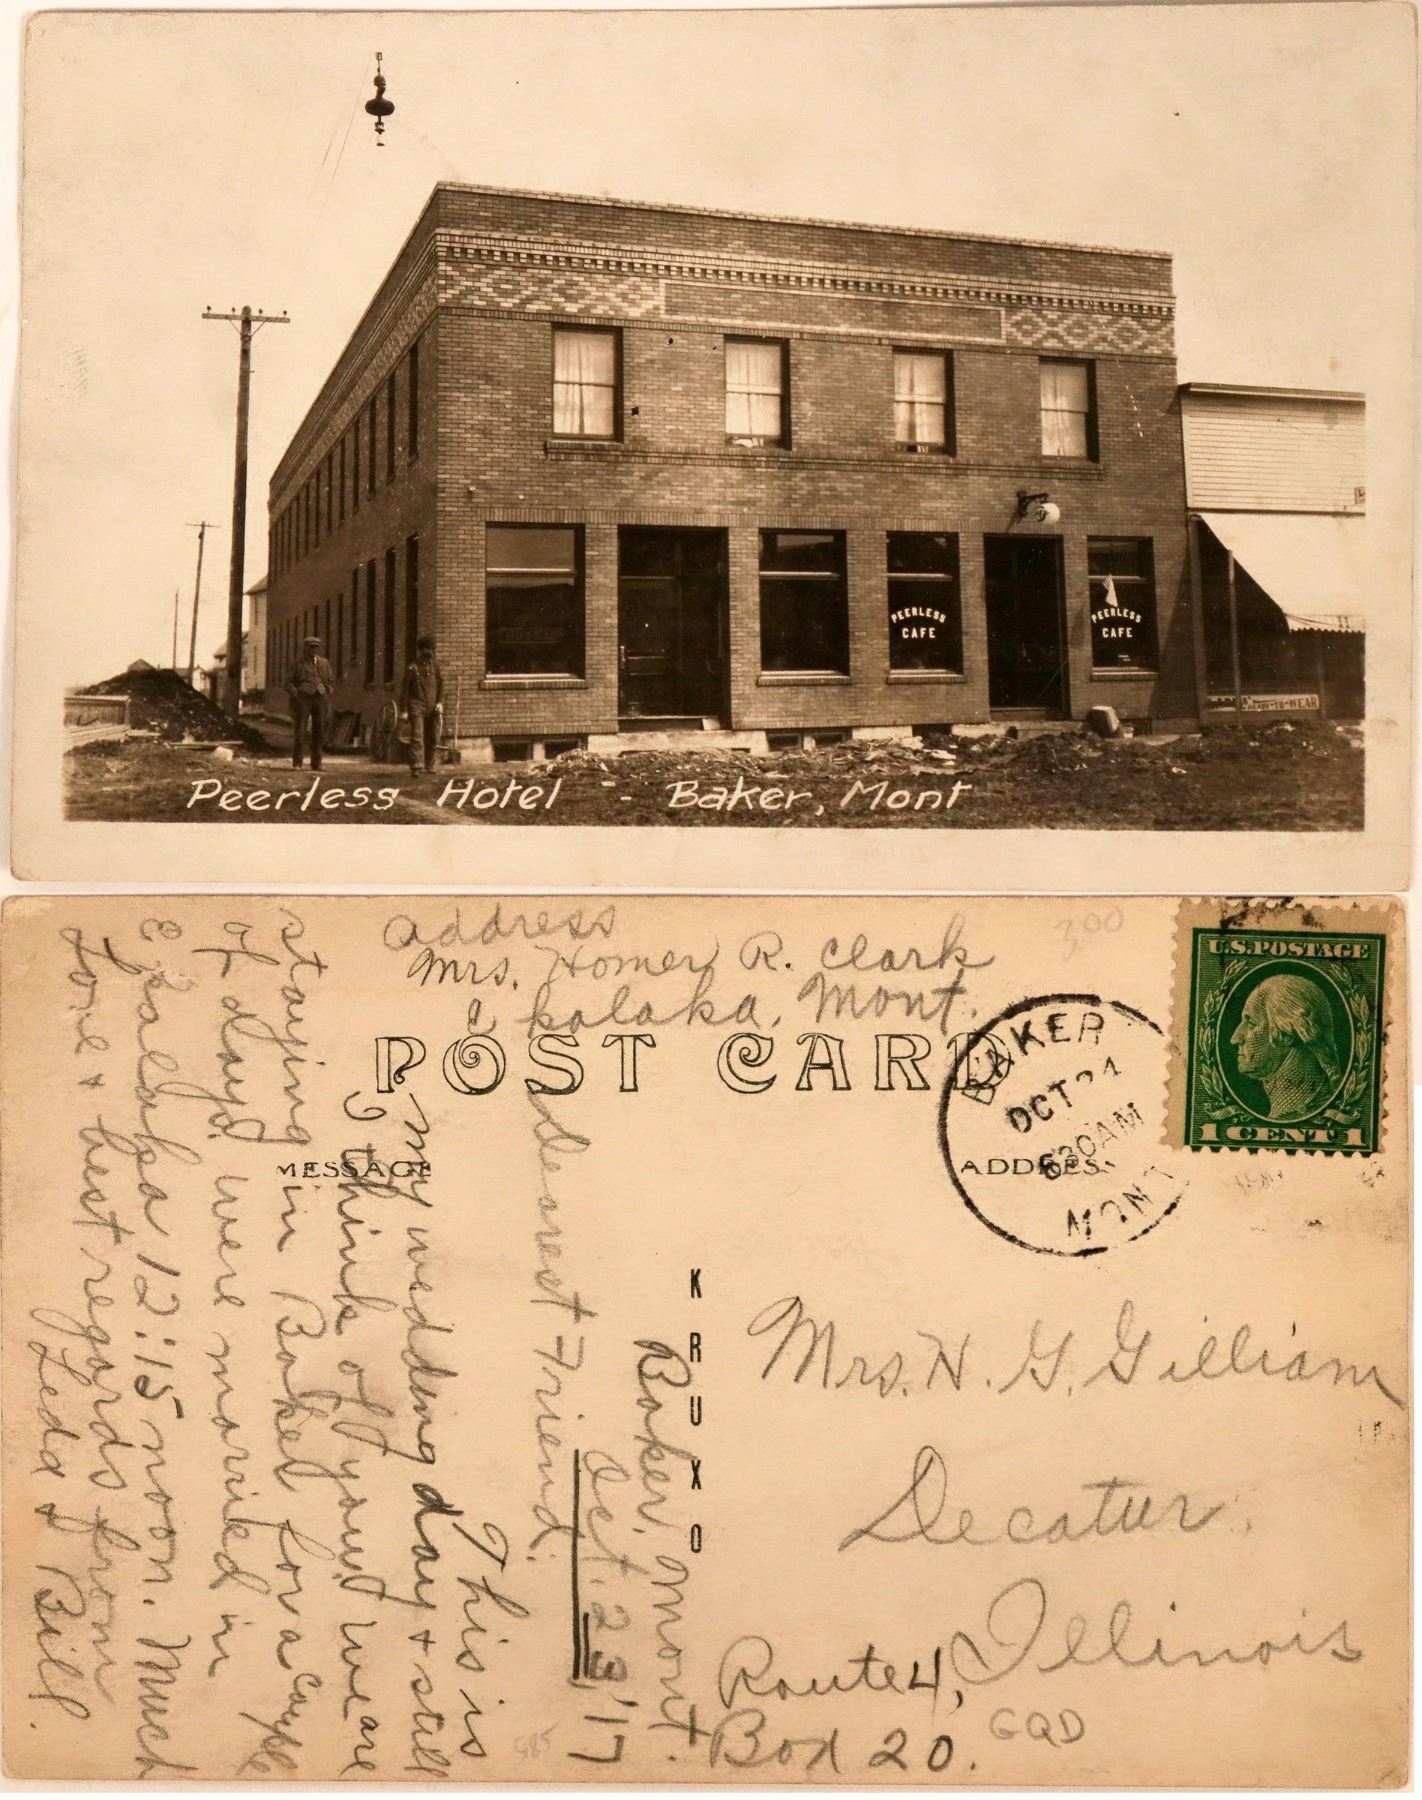 PEERLESS
CAFE
PEERLESS
CAFE
READY-TO-WEAR
Peerless Hotel - Baker, Mont
address
Mrs. Homer R. Clark
Ekalaka, Mont.
300
POST CARD
MESSAGE
ADDRESS
U.S. POSTAGE
1 CENT 1
BAKER
OCT 24
830AM
MONT
KRUXO
Baker. Mont.
Oct. 23, '17
Dearest Friend.
This is
my wedding day & still
I think of you. We are
staying in Baker for a couple
of days. were married in
Ekalaka 12:15 noon. Much
Love & best regards from
Leda & Bill.
Mrs. H. G. Gilliam
Decatur.
Illinois
Route 4,
Box 20.
GQD
585